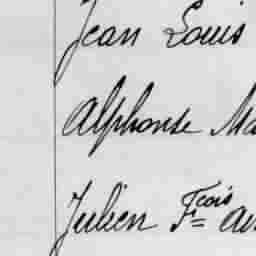 Jean Louis
Alphonse Ma
Julien Fcois au